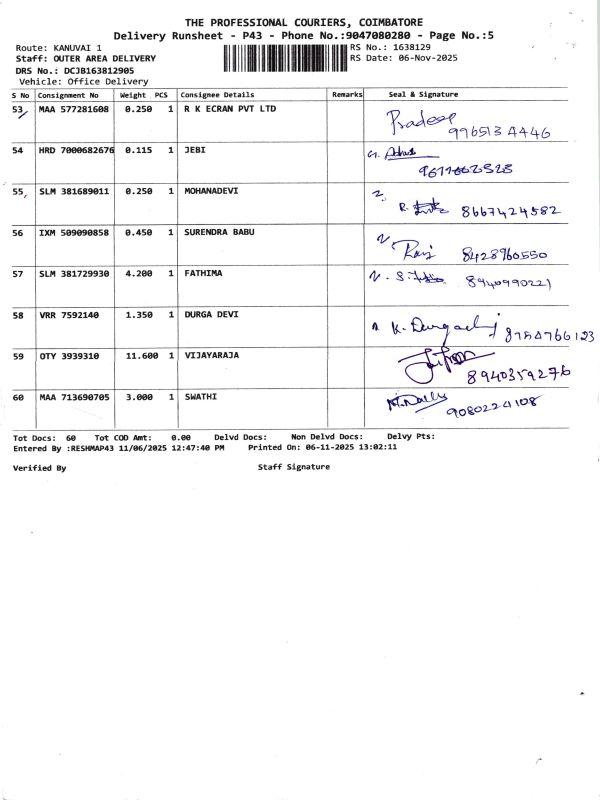 THE PROFESSIONAL COURIERS, COIMBATORE
Delivery Runsheet - P43 - Phone No.:9047080280 - Page No.:5
Route: KANUVAI 1 RS No.: 1638129
Staff: OUTER AREA DELIVERY RS Date: 06-Nov-2025
DRS No.: DCJB163812905
Vehicle: Office Delivery
S No Consignment No Weight PCS Consignee Details Remarks Seal & Signature
53 MAA 577281608 0.250 1 R K ECRAN PVT LTD Pradeep
9965134446
54 HRD 7000682676 0.115 1 JEBI
55 SLM 381689011 0.250 1 MOHANADEVI
R. 8667424582
56 IXM 509090858 0.450 1 SURENDRA BABU
Ravi 8428960550
57 SLM 381729930 4.200 1 FATHIMA S. 8940990221
58 VRR 7592140 1.350 1 DURGA DEVI
K. Durgadevi 8754766123
59 OTY 3939310 11.600 1 VIJAYARAJA
8940359276
60 MAA 713690705 3.000 1 SWATHI
9080224108
Tot Docs: 60 Tot COD Amt: 0.00 Delvd Docs: Non Delvd Docs: Delvy Pts:
Entered By :RESHMAP43 11/06/2025 12:47:40 PM Printed On: 06-11-2025 13:02:11
Verified By Staff Signature